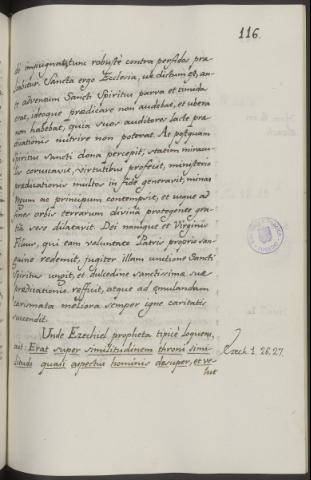 116.
di impugnatum robustè contra perfidos præ
dabitur. Sancta ergo Ecclesia, ut dictum est, an-
te adventum Sancti Spiritus parva et timida
erat, ideoque prædicare non audebat, et ubera
non habebat, quia suos auditores lacte præ-
dicationis nutrire non poterat. At postquam
Spiritus sancti dona percepit, statim miracu-
lis coruscavit, virtutibus profecit, ministerio
prædicationis multos in fide generavit, minas
regum ac principum contempsit, et usque ad
fines orbis terrarum divina protegente gra-
tia sese dilatavit. Dei namque et Virginis
Filius, qui eam voluntate Patris proprio san-
guine redemit, jugiter illam unctione Sancti
Spiritus ungit, et dulcedine sanctissimæ suæ
prædicationis reficit, atque ad æmulandum
carismata meliora semper igne caritatis
succendit.
Unde Ezechiel propheta tipicè loquens,
ait: Erat super similitudinem throni simi-
litudo quasi aspectus hominis desuper, et ve-
lut
Ezech 1. 26. 27.